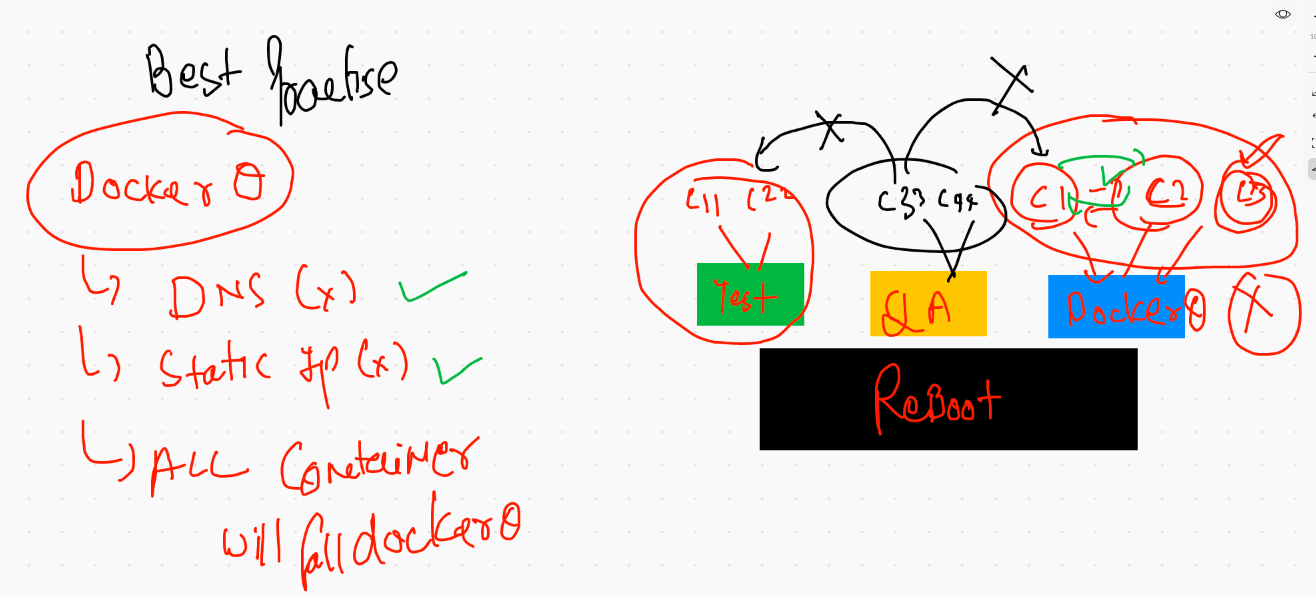 Best Practise
Docker 0
DNS (x)
Static Ip (x)
ALL Container
will fall docker 0
C11 C22
C33 C44
C1 C2 C3
Test
QA
Docker 0
X
ReBoot